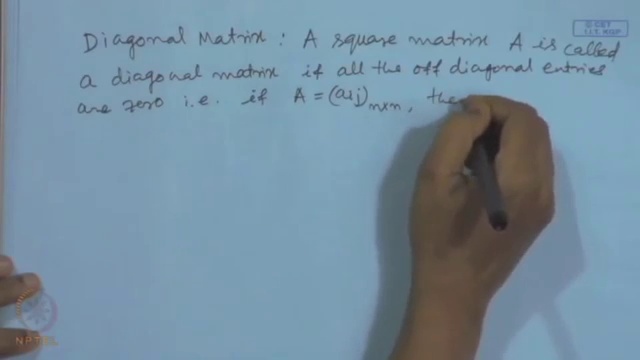 © CET
I.I.T. KGP
Diagonal Matrix : A square matrix A is called
a diagonal matrix if all the off diagonal entries
are zero i.e. if A = (aij)n×n, the
NPTEL